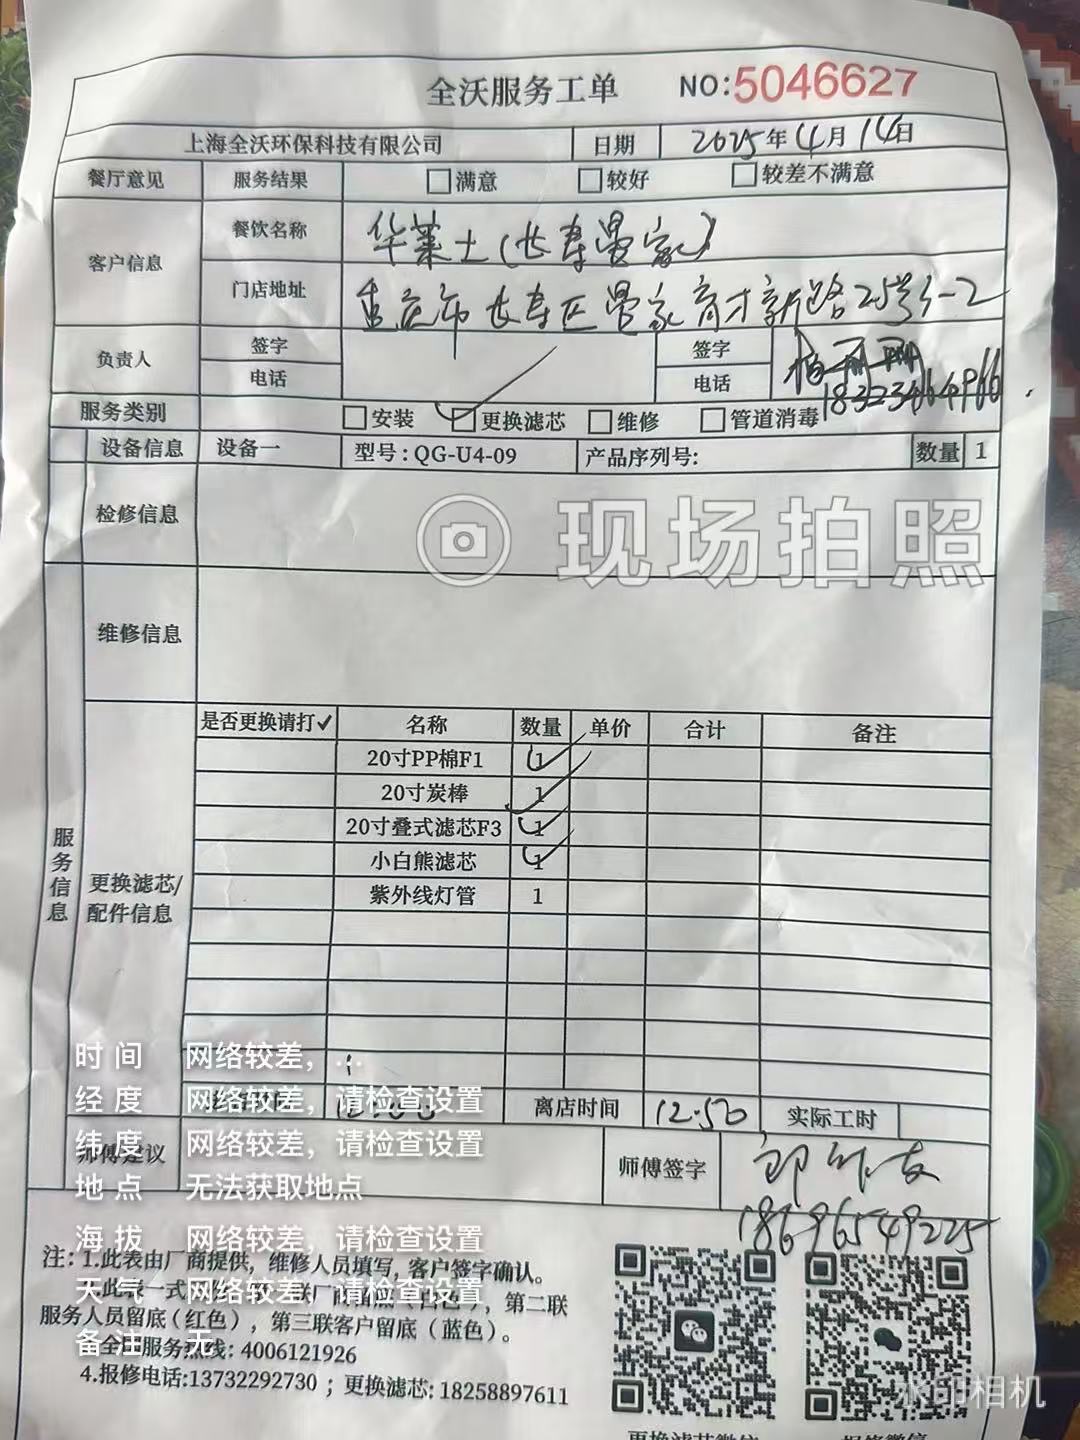 全沃服务工单 NO:5046627
上海全沃环保科技有限公司 日期 2025年4月14日
餐厅意见 服务结果 满意 较好 较差不满意
客户信息 餐饮名称 华莱士(长寿晏家)
门店地址 重庆市长寿区晏家育才新路25号1-2
负责人 签字 签字
电话 电话 18323464966
服务类别 安装 更换滤芯 维修 管道消毒
设备信息 设备一 型号:QG-U4-09 产品序列号: 数量 1
检修信息
现场拍照
维修信息
是否更换请打✓ 名称 数量 单价 合计 备注
20寸PP棉F1 1
20寸炭棒 1
20寸叠式滤芯F3 1
小白熊滤芯 1
紫外线灯管 1
服务信息
更换滤芯/
配件信息
时间 网络较差，...
经度 网络较差，请检查设置
离店时间 12:50 实际工时
纬度 网络较差，请检查设置
师傅建议 师傅签字
地点 无法获取地点
18696549225
海拔 网络较差，请检查设置
注: 1.此表由厂商提供，维修人员填写，客户签字确认。
天气 网络较差，请检查设置
此表一式 第二联
服务人员留底(红色)，第三联客户留底(蓝色)。
备注 无
全国服务热线: 4006121926
4.报修电话:13732292730；更换滤芯: 18258897611
水印相机
更换滤芯微信 报修微信